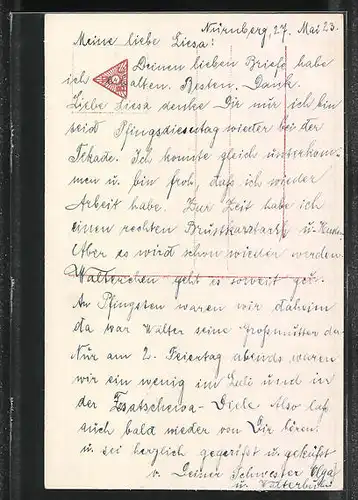 Nürnberg, 27. Mai 23.
Meine liebe Liesa:
Deinen lieben Brief habe
ich erhalten. Besten Dank.
Liebe Liesa denke Dir nur ich bin
seid Pfingsdiesestag wieder bei der
Tekade. Ich konnte gleich unterkom-
men u. bin froh, daß ich wieder
Arbeit habe. Zur Zeit habe ich
einen rechten Brustkazstarts u. Husten
Aber es wird schon wieder werden.
Walterchen geht es soweit gut.
An Pfingsten waren wir daheim
da war Walter seine Großmutter da.
Nur am 2. Feiertag abends waren
wir ein wenig im und in
der Diele. Also laß
auch bald wieder von Dir hören.
u. sei herzlich gegrüßt u. geküßt
v. Deiner Schwester Olga
u. Walterbub